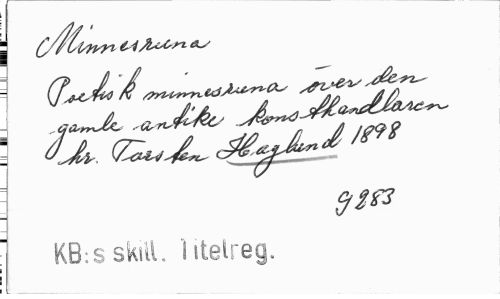 Minnesruna
Poetisk minnesruna över den
gamle antike konsthandlaren
hr. Torsten Haglund 1898
G 283
KB:s skill. Titelreg.